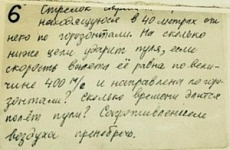 6 Стрелок
находящуюся в 40 метрах от
него по горизонтали. На сколько
ниже цели ударит пуля, если
скорость вылета её равна по вели-
чине 400 м/с и направлена по гори-
зонтали? Сколько времени длится
полёт пули? Сопротивлением
воздуха пренебречь.